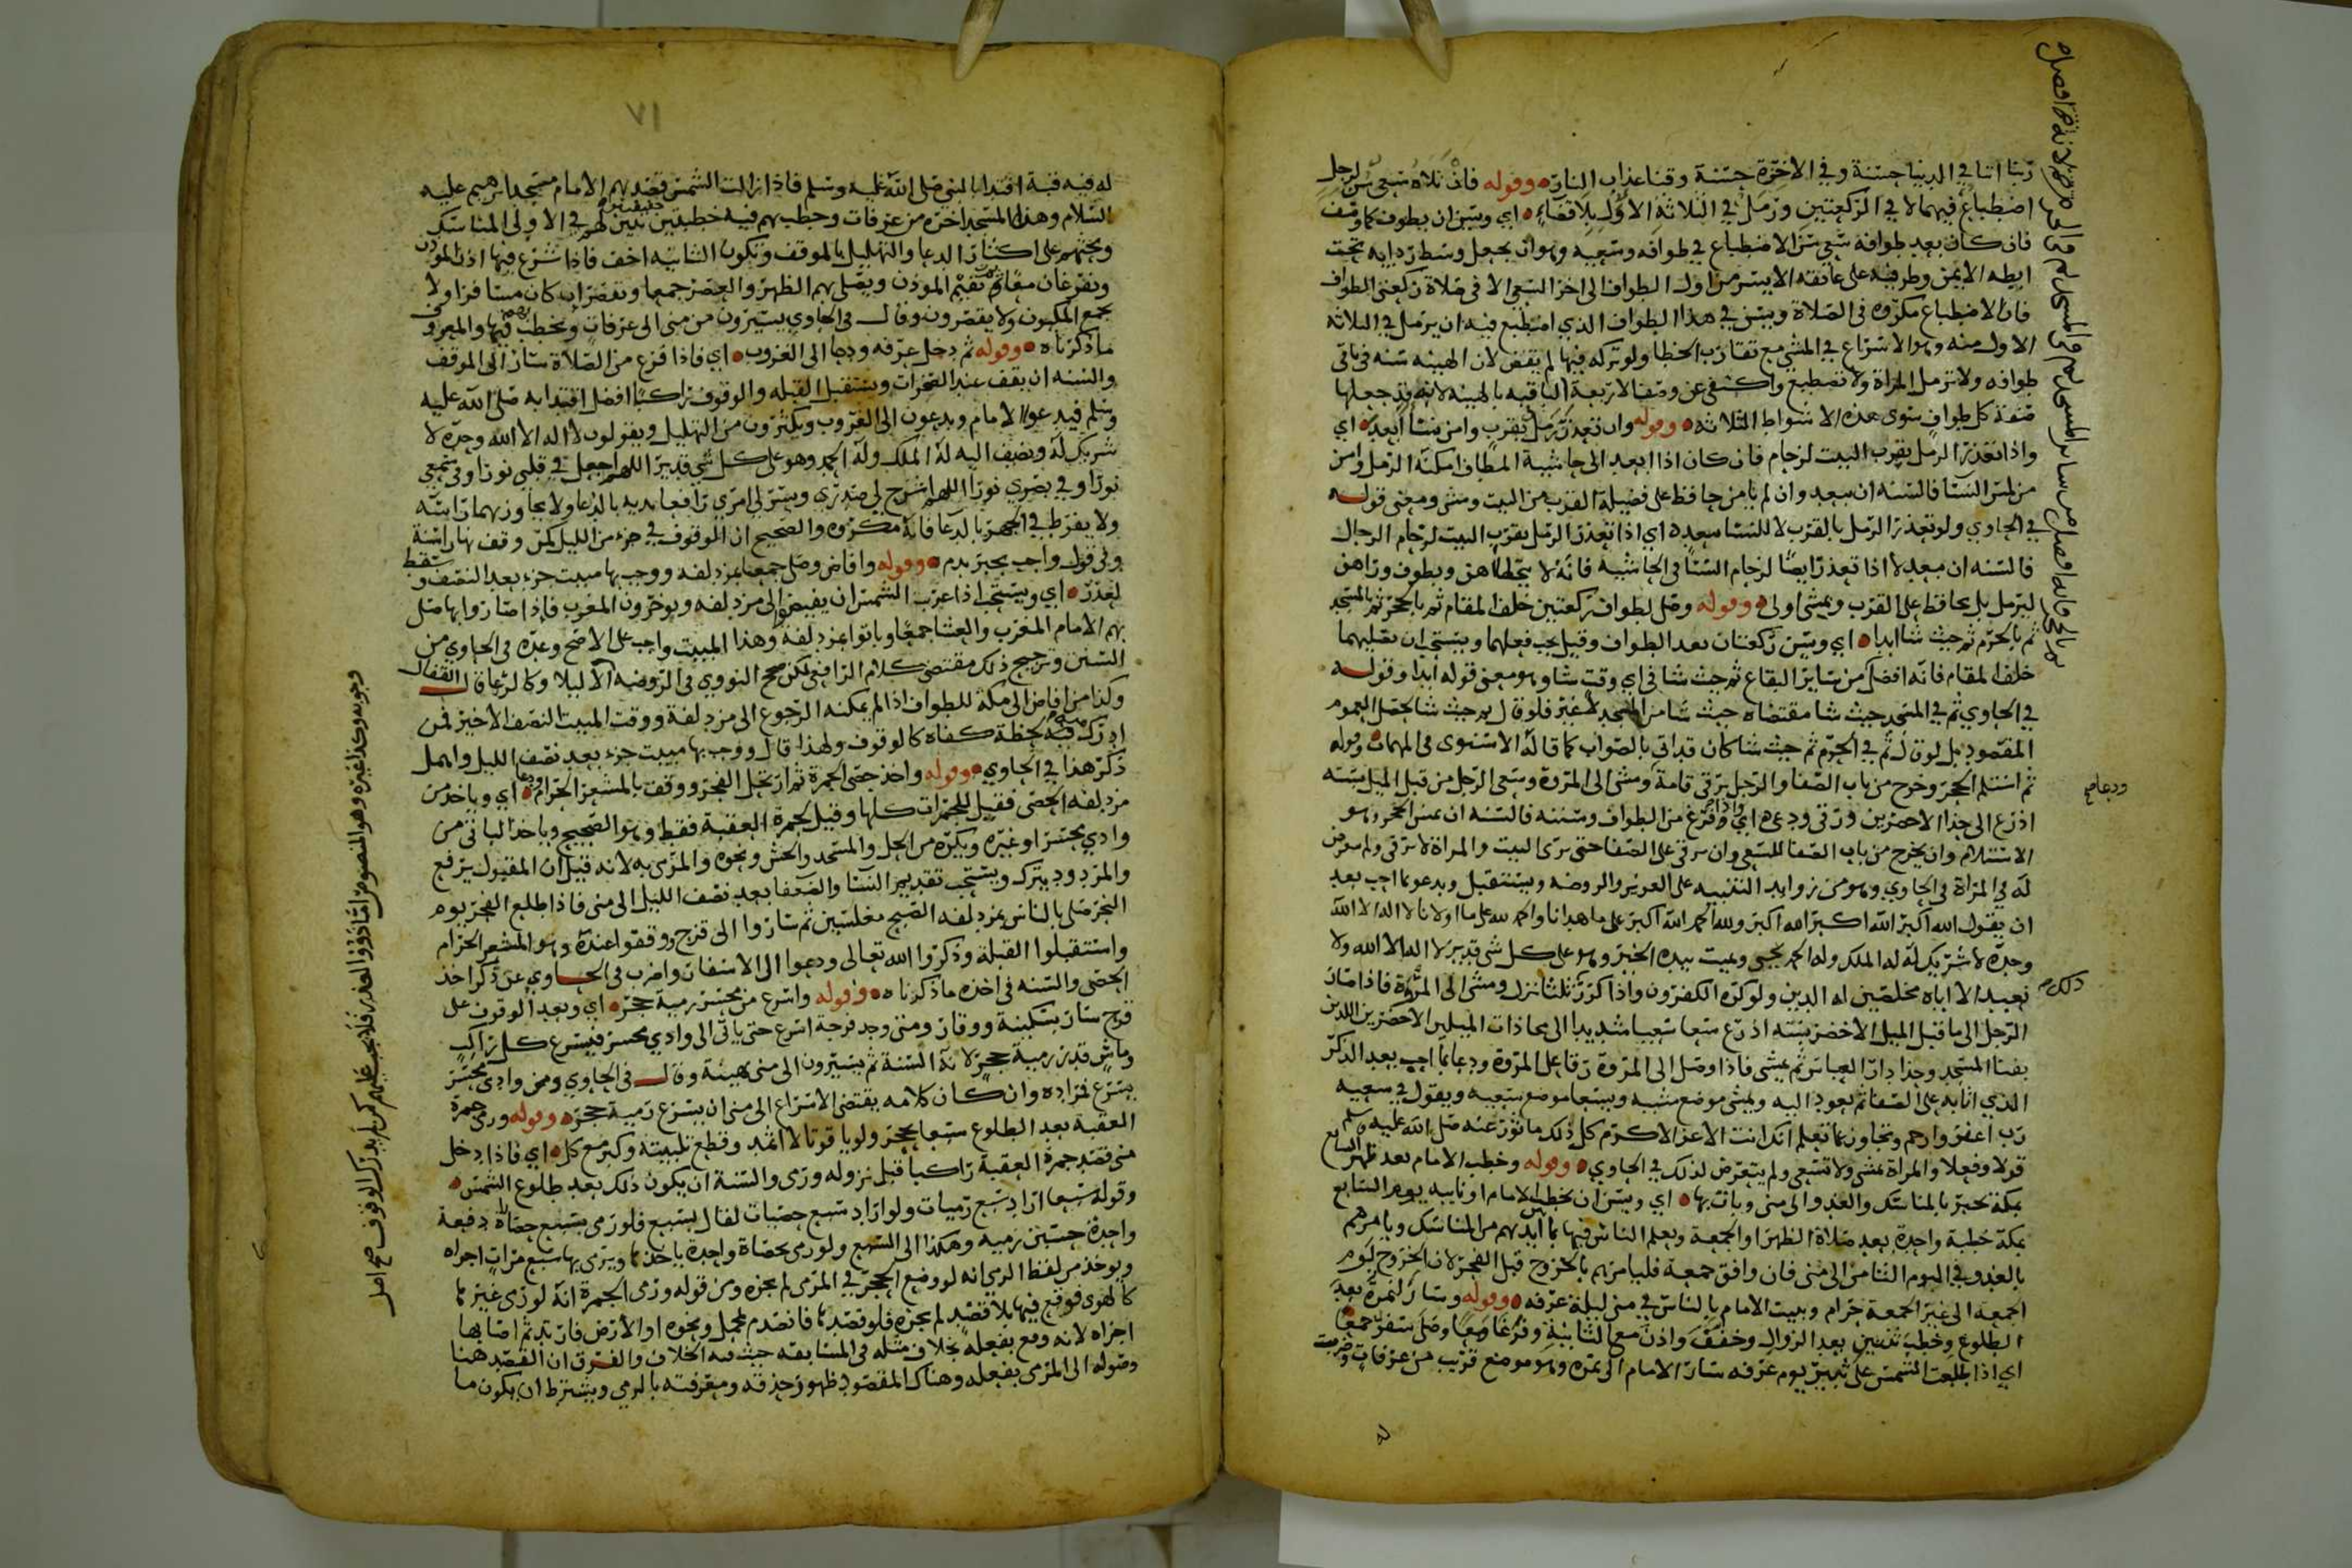 ربنا اتنا في الدنيا حسنة وفي الاخرة حسنة وقنا عذاب النار وقوله فان تلاه سعي سن لرجل
اضطباع فيهما لا في الركعتين ورمل في الثلاثة الاول بلا قضاء اي ويسن ان يطوف كما وصف
فان كان بعد طوافه سعي سن الاضطباع في طوافه وسعيه وهو ان يجعل وسط ردايه تحت
ابطه الايمن وطرفيه على عاتقه الايسر من اول الطواف الى اخر السعي الا في صلاة ركعتي الطواف
فان الاضطباع مكروه في الصلاة ويسن في هذا الطواف الذي اضطبع فيه ان يرمل في الثلاثة
الاول منه وهو الاسراع في المشي مع تقارب الخطا ولو تركه فيها لم يقض لان الهينه سنه في باقي
طوافه ولا ترمل المراة ولا تضطبع واكتفى عن وصف الاربعة الباقيه بالهينه لانه قد جعلها
صفة كل طواف سوى هذه الاشواط الثلاثه وقوله وان تعذر رمل بقرب وامن نسا ابعد اي
واذا تعذر الرمل بقرب البيت لزحام فان كان اذا ابعد الى حاشية المطاف امكنه الرمل وامن
من لمس النسا فالسنه ان يبعد وان لم يامن حافظ على فضيلة القرب من البيت ومشى ومعنى قوله
في الحاوي ولو تعذر الرمل بالقرب لا للنسا يبعد اي اذا تعذر الرمل بقرب البيت لزحام الرجال
فالسنه ان يبعد لا اذا تعذر ايضا لزحام النسا في الحاشية فانه لا يخالطهن ويطوف وراهن
ليرمل بل يحافظ على القرب ويمشي اولى وقوله وصل لطواف ركعتين خلف المقام ثم بالحجر ثم بالمسجد
ثم بالحرم ثم حيث شا ابدا اي ويسن ركعتان بعد الطواف وقيل يجب فعلهما ويستحب ان يصليهما
خلف المقام فانه افضل من ساير البقاع ثم حيث شا في اي وقت شا وهو معنى قوله ابدا وقوله
في الحاوي ثم في المسجد حيث شا مقتضاه حيث شا من المسجد لا غير فلو قال ثم حيث شا لحصل العموم
المقصود بل لو قال ثم في الحرم ثم حيث شا كان قد اتى بالصواب كما قاله الاسنوي في المهمات وقوله
ثم استلم الحجر وخرج من باب الصفا والرجل يرقى قامة ومشى الى المروة وسعى الرجل من قبل الميل بسته
اذرع الى حذا الاخضرين ورقى ودعى اي واذا فرغ من الطواف وسننه فالسنه ان يمس الحجر وهو
الاستلام وان يخرج من باب الصفا للسعي وان يرقى على الصفا حتى يرى البيت والمراة لا ترقى ولم يتعرض
له في المراة في الحاوي وهو من زوايد التنبيه على العزيز والروضه ويستقبل ويدعو بما احب بعد
ان يقول الله اكبر الله اكبر الله اكبر ولله الحمد الله اكبر على ما هدانا والحمد لله على ما اولانا لا اله الا الله
وحده لا شريك له له الملك وله الحمد يحيي ويميت بيده الخير وهو على كل شي قدير لا اله الا الله ولا
نعبد الا اياه مخلصين له الدين ولو كره الكفرون واذا كرر ثلثا نزل ومشى الى المروة فاذا صار
الرجل الى ما قبل الميل الاخضر بسته اذرع سعا سعيا شديدا الى محاذات الميلين الاخضرين اللذين
بفنا المسجد وحذا دار العباس ثم يمشي فاذا وصل الى المروة رقا على المروة ودعا بما احب بعد الذكر
الذي اتا به على الصفا ثم يعود اليه ويمشي موضع مشيه ويسعا موضع سعيه ويقول في سعيه
رب اغفر وارحم وتجاوز عما تعلم انك انت الاعز الاكرم كل ذلك ماثور عنه صلى الله عليه وسلم
قولا وفعلا والمراة تمشي ولا تسعى ولم يتعرض لذلك في الحاوي وقوله وخطب الامام بعد ظهر السابع
بمكة تخبر بالمناسك والغدو الى منى وبات بها اي ويسن ان يخطب الامام او نايبه يوم السابع
بمكة خطبة واحدة بعد صلاة الظهر او الجمعة ويعلم الناس فيها بما ايديهم من المناسك ويامرهم
بالغدو في اليوم الثامن الى منى فان وافق جمعة فليامرهم بالخروج قبل الفجر لان الخروج ليوم
الجمعه الى غير الجمعة حرام ويبيت الامام بالناس في منى ليلة عرفه وقوله وسار لنمرة بعد
الطلوع وخطب ثنتين بعد الزوال وخفف واذن مع الثانية وفرغا معا وصلى سفر جمعا
اي اذا طلعت الشمس على ثبير يوم عرفه سار الامام الى نمره وهو موضع قريب من عرفات وضربت
له
ودعا صح
ذلك صح
٧١
له فيه قبة اقتدا بالنبي صلى الله عليه وسلم فاذا زالت الشمس قصد بهم الامام مسجد ابرهيم عليه
السلام وهذا المسجد اخره من عرفات وخطب بهم فيه خطبتين خفيفتين يبين لهم في الاولى المناسك
ويحثهم على اكثار الدعا والتهليل بالموقف وتكون الثانيه اخف فاذا شرع فيها اذن الموذن
ويفرغان معا ثم يقيم الموذن ويصلي بهم الظهر والعصر جمعا ويقصر ان كان مسافرا ولا
يجمع المكيون ولا يقصرون وقال في الحاوي يسيرون من منى الى عرفات ويخطب بهم فيها والمعروف
ما ذكرناه وقوله ثم دخل عرفه ودعا الى الغروب اي فاذا فرغ من الصلاة سار الى الموقف
والسنه ان يقف عند الصخرات ويستقبل القبله والوقوف راكبا افضل اقتدا به صلى الله عليه
وسلم فيدعوا الامام ويدعون الى الغروب ويكثرون من التهليل ويقولون لا اله الا الله وحده لا
شريك له ويضف اليه له الملك وله الحمد وهو على كل شي قدير اللهم اجعل في قلبي نورا وفي سمعي
نورا وفي بصري نورا اللهم اشرح لي صدري ويسر لي امري رافعا يديه بالدعا ولا يجاوز بهما راسه
ولا يفرط في الجهر بالدعا فانه مكروه والصحيح ان الوقوف في جزء من الليل لمن وقف نهارا سنة
وفي قول واجب يجبر بدم وقوله وافاض وصلى جمعا بمزدلفه ووجب بها مبيت جزء بعد النصف وسقط
لعذر اي ويستحب اذا غربت الشمس ان يفيضوا الى مزدلفه ويوخرون المغرب فاذا صاروا بها صلى
بهم الامام المغرب والعشا جمعا وباتوا بمزدلفة وهذا المبيت واجب على الاصح وعده في الحاوي من
السنن وترجيح ذلك مقتضى كلام الرافعي لكن صحح النووي في الروضه الاول وكالرعا قال القفال
وكذا من افاض الى مكة للطواف اذا لم يمكنه الرجوع الى مزدلفة ووقت المبيت النصف الاخير فمن
ادرك فيه لحظة كفاه كالوقوف ولهذا قال ووجب بها مبيت جزء بعد نصف الليل واهمل
ذكر هذا في الحاوي وقوله واخذ حصى الجمرة ثم ارتحل الفجر ووقف بالمشعر الحرام اي وياخذ من
مزدلفه الحصى فقيل للجمرات كلها وقيل لجمرة العقبة فقط وهو الصحيح وياخذ الباقي من
وادي محسر او غيره ويكره من الحل والمسجد والحش ونحوه والمرمي به لانه قيل ان المقبول يرفع
والمردود يترك ويستحب تقديم النسا والضعفا بعد نصف الليل الى منى فاذا طلع الفجر يوم
النحر صلى بالناس بمزدلفه الصبح مغلسين ثم ساروا الى قزح ووقفوا عنده وهو المشعر الحرام
واستقبلوا القبلة وذكروا الله تعالى ودعوا الى الاسفار واضرب في الحاوي عن ذكر اخذ
الحصى والسنه في اخذه ما ذكرناه وقوله واسرع من محسر رمية حجر اي وبعد الوقوف على
قزح سار بسكينة ووقار ومتى وجد فرجة اسرع حتى ياتي الى وادي محسر فيسرع كل راكب
وماش قدر رمية حجر لانه السنة ثم يسيرون الى منى بهينة وقال في الحاوي ومن وادي محسر
يسرع فمراده وان كان كلامه يقتضي الاسراع الى منى ان يسرع رمية حجر وقوله ورمى جمرة
العقبة بعد الطلوع سبعا بحجر ولو ياقوتا لا اثمد وقطع تلبيته وكبر مع كل اي فاذا دخل
منى قصد جمرة العقبة راكبا قبل نزوله ورمى والسنة ان يكون ذلك بعد طلوع الشمس
وقوله سبعا اراد سبع رميات ولو اراد سبع حصيات لقال بسبع فلو رمى بسبع حصاة دفعة
واحدة حسبن رميه وهكذا الى السبع ولو رمى بحصاة واحدة ياخذها ويرمي بها سبع مرات اجزاه
ويوخذ من لفظ الرمي انه لو وضع الحجر في المرمى لم يجزه ومن قوله ورمى الجمرة انه لو رمى غيرها
كالهوى فوقع فيها بلا قصد لم يجزه فلو قصدها فانصدم بمحمل ونحوه او الارض فارتد ثم اصابها
اجزاه لانه وقع بفعله بخلاف مثله في المسابقه حيث فيه الخلاف والفرق ان القصد هنا
وصوله الى المرمى بفعله وهناك المقصود ظهور حذقه ومعرفته بالرمي ويشترط ان يكون ما